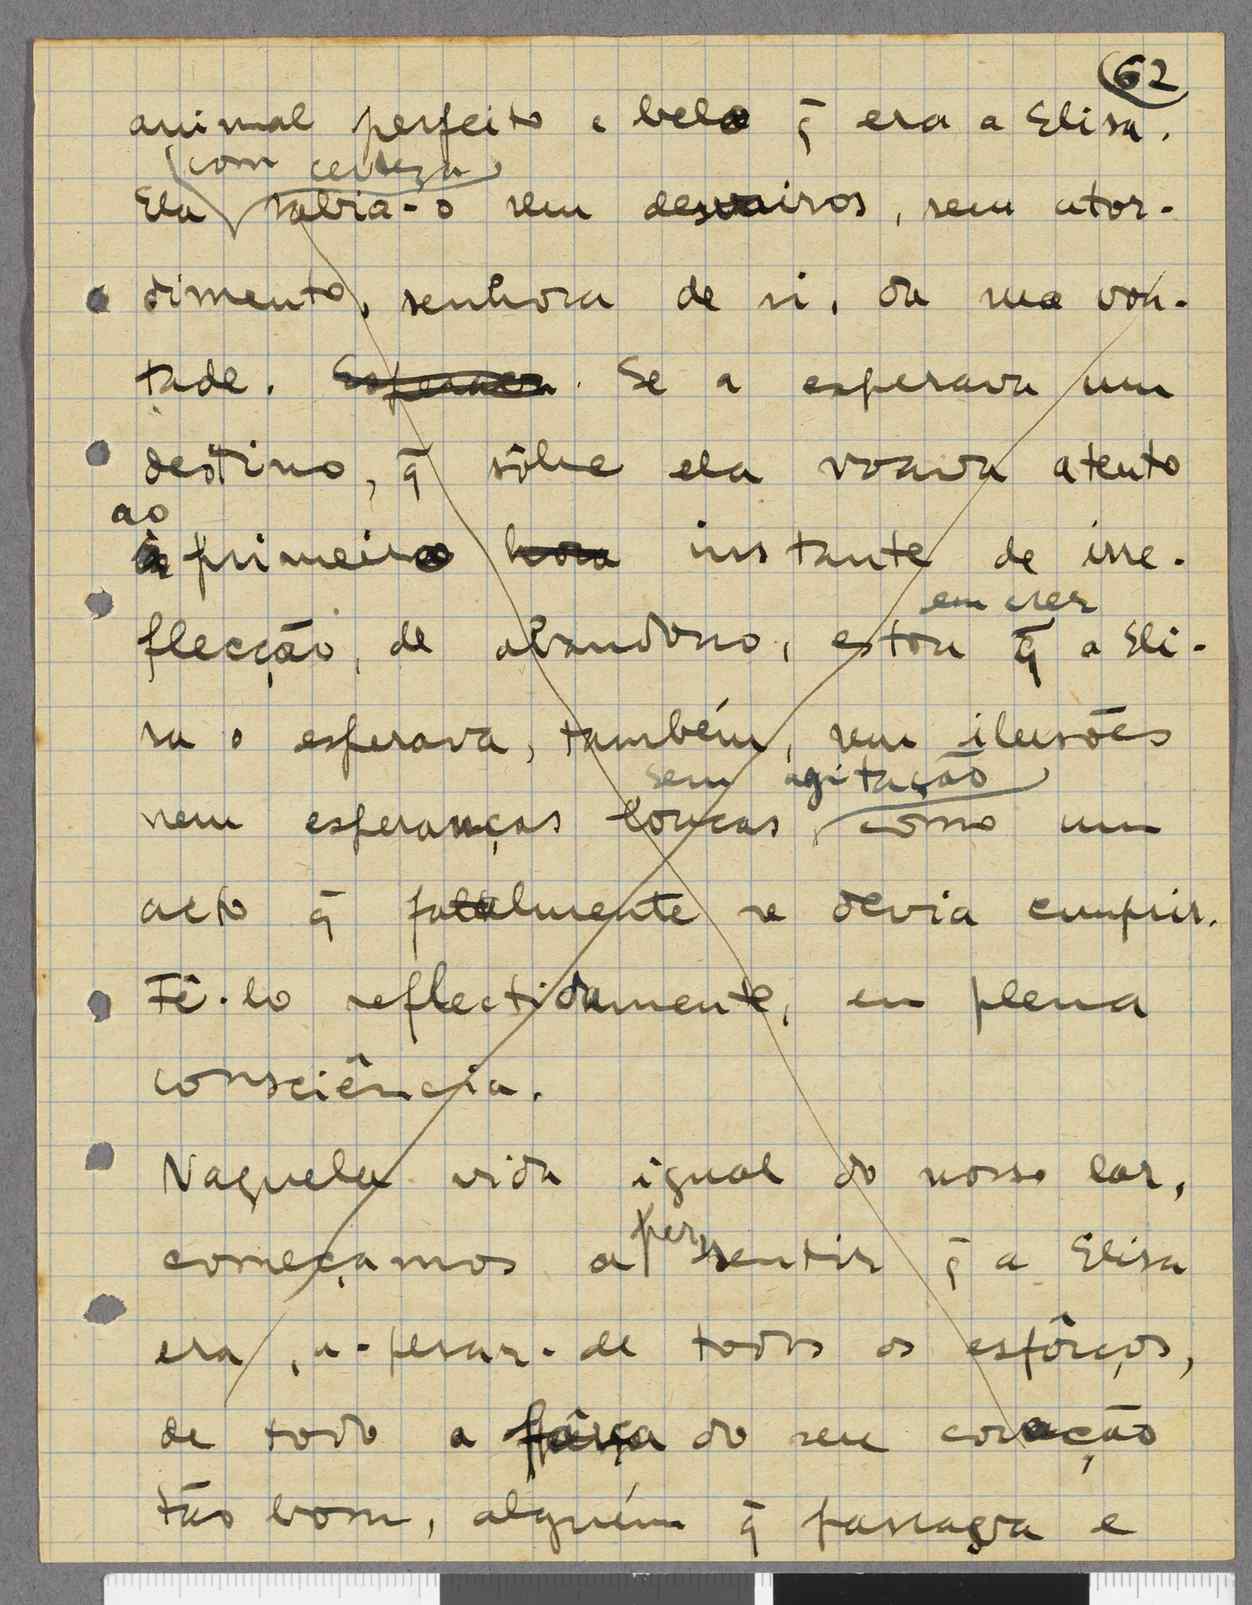 62
animal perfeito e belo q̃ era a Elisa.
com certeza
Ela sabia-o sem desvairos, sem ator-
dimento, senhora de si, da sua von-
tade. Esperava. Se a esperava um
destino, q̃ sôbre ela voava atento
ao
à primeiro hora instante de irre-
em crer
flecção, de abandono, estou q̃ a Eli-
sa o esperava, também, sem ilusões
sem agitação
nem esperanças loucas como um
acto q̃ fatalmente se devia cumprir.
Fê-lo reflectidamente, em plena
consciência.
Naquela vida igual do nosso lar,
pres
começamos a sentir q̃ a Elisa
era, a-pesar-de todos os esfôrços,
de todo a fôrça do seu coração
tão bom, alguém q̃ passava e